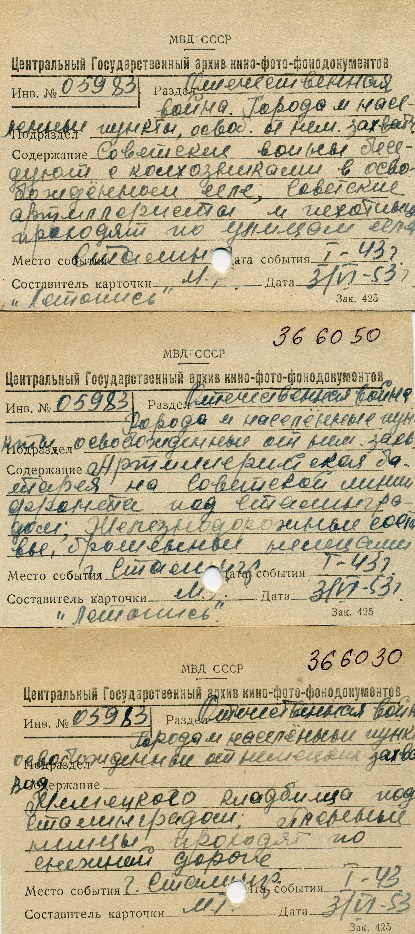 МВД СССР
Центральный Государственный архив кино-фото-фонодокументов
Инв. № 05983 Раздел Отечественная
война. Города и насе-
ленные пункты, освоб. от нем. захват
Подраздел
Содержание Советские воины бесе-
дуют с колхозниками в осво-
бождённом селе, Советские
артиллеристы и пехотинцы
проходят по улицам села
Место события г. Сталингр Дата события I-43г
Составитель карточки М.Г. Дата 3/VI-53г
"Летопись" Зак. 425
366050
МВД СССР
Центральный Государственный архив кино-фото-фонодокументов
Инв. № 05983 Раздел Отечественная война
Города и населённые пунк
ты освобожденные от нем. захв
Подраздел
Содержание Артиллерийская ба-
тарея на Советской линии
фронта под Сталингра
дом; Железнодорожные соста
вы, брошенные немцами
Место события г. Сталингр Дата события I-43г
Составитель карточки М.Г. Дата 3/VI-53г
"Летопись" Зак. 425
366030
МВД СССР
Центральный Государственный архив кино-фото-фонодокументов
Инв. № 05983 Раздел Отечественная войн
Города и населённые пункт
освобожденные от немецких захва
Подраздел
Содержание Вид
Немецкого кладбища под
Сталинградом; пленные
немцы проходят по
снежной дороге
Место события г. Сталингр. Дата события I-43
Составитель карточки М.Г. Дата 3/VI-53
Зак. 425